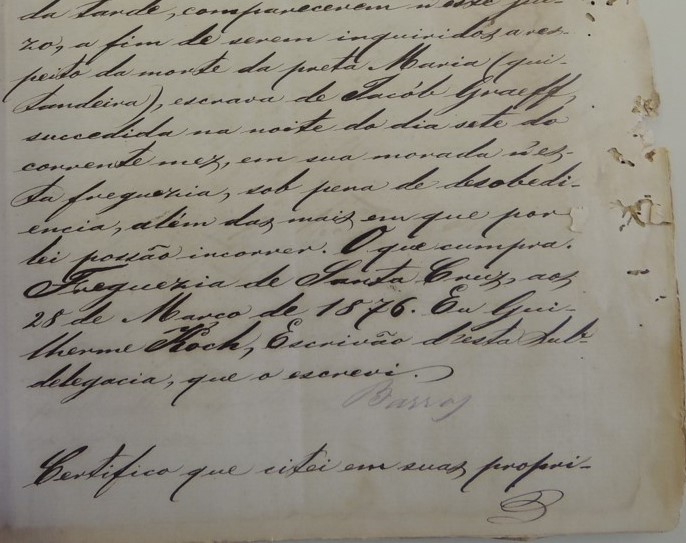 da tarde, comparecerem n'este jui-
zo, a fim de serem inquiridos a res-
peito da morte da preta Maria (qui-
tandeira), escrava de Jacób Graeff,
succedida na noite do dia sete do
corrente mez, em sua morada n'es-
ta freguezia, sob pena de desobedi-
encia, além das mais em que por
lei possão incorrer. O que cumpra.
Freguezia de Santa Cruz, aos
28 de Março de 1876. Eu Gui-
lherme Koch, Escrivão d'esta Sub-
delegacia, que o escrevi.
Barros
Certifico que citei em suas propri-